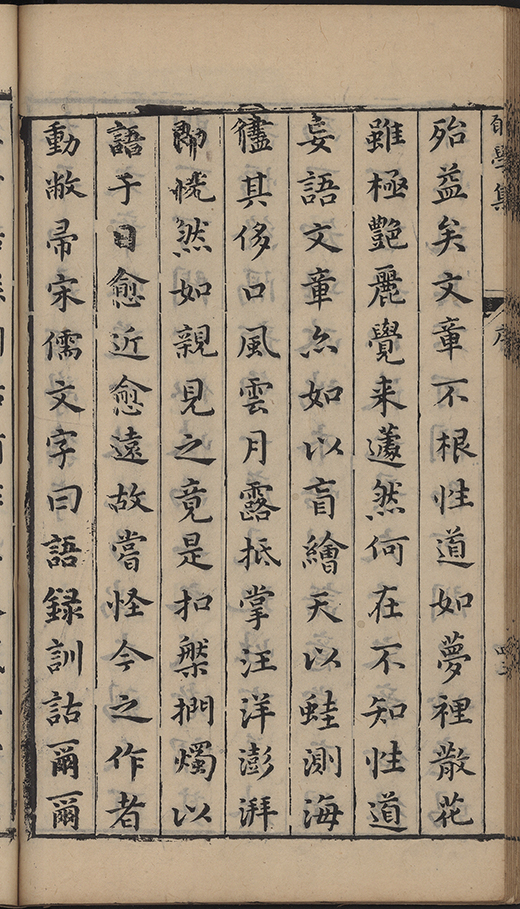 學集
序
殆益矣文章不根性道如夢裡散花
雖極艷麗覺来蘧然何在不知性道
妄語文章亦如以盲繪天以蛙測海
儘其侈口風雲月露抵掌汪洋澎湃
即恍然如親見之竟是扣槃捫燭以
語于日愈近愈遠故嘗怪今之作者
動敝帚宋儒文字曰語録訓詁爾爾